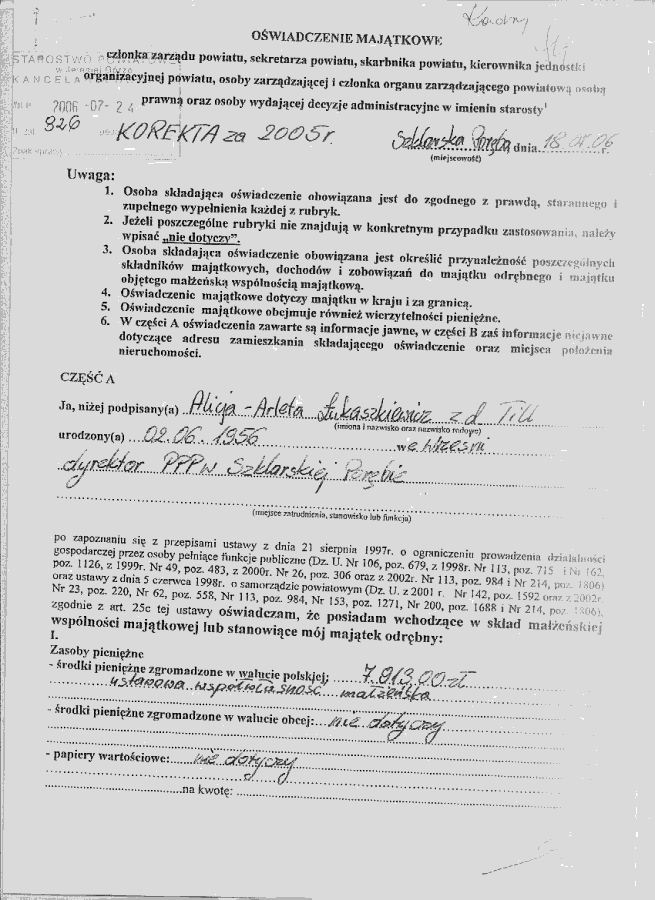 Kadry
OŚWIADCZENIE MAJĄTKOWE
członka zarządu powiatu, sekretarza powiatu, skarbnika powiatu, kierownika jednostki
STAROSTWO POWIATOWE
w Jeleniej Górze
organizacyjnej powiatu, osoby zarządzającej i członka organu zarządzającego powiatową osobą
KANCELA
prawną oraz osoby wydającej decyzje administracyjne w imieniu starosty¹
2006 -07- 24
926
KOREKTA za 2005r.
Szklarska Poręba, dnia 18.07.06 r.
(miejscowość)
Uwaga:
1. Osoba składająca oświadczenie obowiązana jest do zgodnego z prawdą, starannego i
zupełnego wypełnienia każdej z rubryk.
2. Jeżeli poszczególne rubryki nie znajdują w konkretnym przypadku zastosowania, należy
wpisać „nie dotyczy".
3. Osoba składająca oświadczenie obowiązana jest określić przynależność poszczególnych
składników majątkowych, dochodów i zobowiązań do majątku odrębnego i majątku
objętego małżeńską wspólnością majątkową.
4. Oświadczenie majątkowe dotyczy majątku w kraju i za granicą.
5. Oświadczenie majątkowe obejmuje również wierzytelności pieniężne.
6. W części A oświadczenia zawarte są informacje jawne, w części B zaś informacje niejawne
dotyczące adresu zamieszkania składającego oświadczenie oraz miejsca położenia
nieruchomości.
CZĘŚĆ A
Ja, niżej podpisany(a) Alicja - Arleta Łukaszkiewicz z d. Till
(imiona i nazwisko oraz nazwisko rodowe)
urodzony(a) 02.06.1956 we Wrześni
dyrektor PPPw Szklarskiej Porębie
(miejsce zatrudnienia, stanowisko lub funkcja)
po zapoznaniu się z przepisami ustawy z dnia 21 sierpnia 1997r. o ograniczeniu prowadzenia działalności
gospodarczej przez osoby pełniące funkcje publiczne (Dz. U. Nr 106, poz. 679, z 1998r. Nr 113, poz. 715 i Nr 162,
poz. 1126, z 1999r. Nr 49, poz. 483, z 2000r. Nr 26, poz. 306 oraz z 2002r. Nr 113, poz. 984 i Nr 214, poz. 1806)
oraz ustawy z dnia 5 czerwca 1998r. o samorządzie powiatowym (Dz. U. z 2001 r. Nr 142, poz. 1592 oraz z 2002r.
Nr 23, poz. 220, Nr 62, poz. 558, Nr 113, poz. 984, Nr 153, poz. 1271, Nr 200, poz. 1688 i Nr 214, poz. 1806),
zgodnie z art. 25c tej ustawy oświadczam, że posiadam wchodzące w skład małżeńskiej
wspólności majątkowej lub stanowiące mój majątek odrębny:
I.
Zasoby pieniężne
- środki pieniężne zgromadzone w walucie polskiej: 7.913,00 zł
ustawowa współwłasność małżeńska
- środki pieniężne zgromadzone w walucie obcej: nie dotyczy
- papiery wartościowe: nie dotyczy
na kwotę: